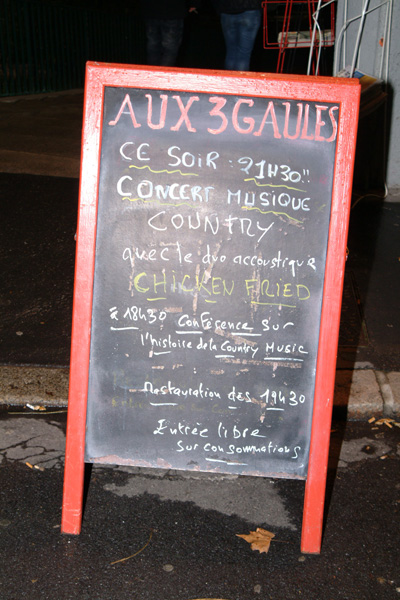 AUX 3 GAULES
CE SOIR : 21H30!!
CONCERT MUSIQUE
COUNTRY
avec le duo accoustique
CHICKEN FRIED
à 18H30 Conférence sur
l'histoire de la Country MUSIC
Restauration dès 19H30
Entrée libre
sur consommations